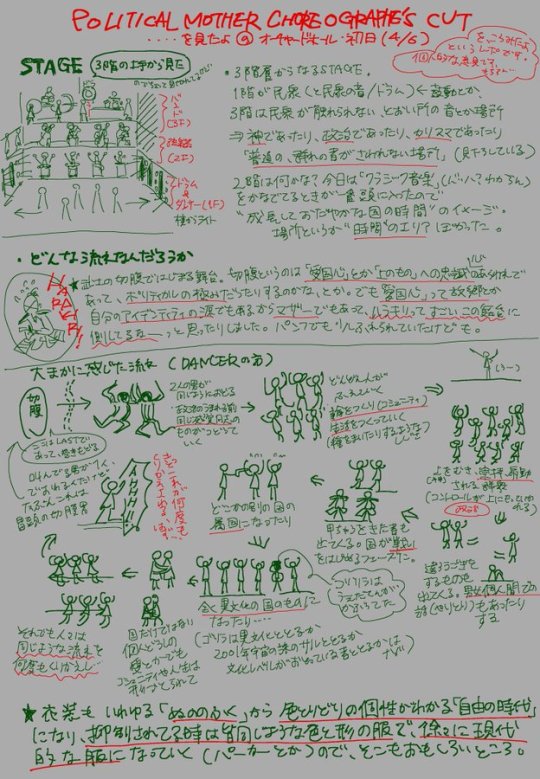 POLITICAL MOTHER CHOREOGRAPHER'S CUT
....を見たよ @ オーチャードホール・初日(4/6)
をこうみたよ
というレポです。
個人的な意見です。
STAGE
3階の上手から見て
・3階層からなるSTAGE。
1階が民衆(と民衆の音/ドラム)鼓動とか、
3階は民衆が触れられない、とおい所の音とか場所
⇒神であったり、政治であったり、カリスマであったり
「普通の、群れの者がさわれない場所」(見下ろしている)
2階は何かな?今日は"クラシック音楽"
をかなでてるときが冒頭に入ったので
"成長しておだやかな国の時間"のイメージ。
場所というか"時間"のエリアぽかった。
バンド
(3F)
弦楽器
(2F)
ドラム
&
ダンサー(1F)
横からライト
・どんな流れなんだろうか
HARAKIRI!
★武士の切腹ではじまる舞台。切腹というのは「愛国心」とか「上のもの」への忠誠のあらわれで
あって、ポリティカルの極みだったりするのかな、とか。でも「愛国心」って故郷とか
自分のアイデンティティの源でもあるからマザーでもあって、ハラキリってすごいこの舞台に
即してるなーっと思ったりしました。パンフでも少しふれられていたけども。
大まかに感じた流れ(DANCERの方)
切腹
2人の男が
同じようにおどる
ものがつどって
いく
どんどん人が
ふえていく
輪をつくり(コミュニティ)
生活をつくっていく
(種をまいたりするような
しぐさ
(うー)
上をむき、崇拝、扇動
される群衆
(コントロールが上にもとめら
れる)
ここはLASTで
あって、巻きもどる
叫んでる男がいて
冒頭の切腹者
AAHHH!!
どこかの別の国の
風国になったり
甲ちゅうをきた者も
出てくる。国が戦い
をはじめるフェーズに。
違うふうごきを
するものも
出てくる。男女個人間での
話(やりとり)もあったり
する
ゴリラは
うえだてんが
かぶってた
全く異文化の国のものに
なったり……
(ゴリラは異文化ととるか
2001年宇宙の旅のサルととるか
文化レベルが下がっている者ととるかは
ナゾ)
国だけではなく
個人どうしの
種とかでも
コミュニティや人生は
形づくられて
それでも人々は
同じような流れを
何度もくりかえし…
★衣装もいわゆる「ぬののふく」から色とりどりの個性がわかる「自由の時代」
になり、抑制されてる時は皆同じような色と形の服で、徐々に現代
的な服になっていく(パーカーとか)ので、そこもおもしろいところ。